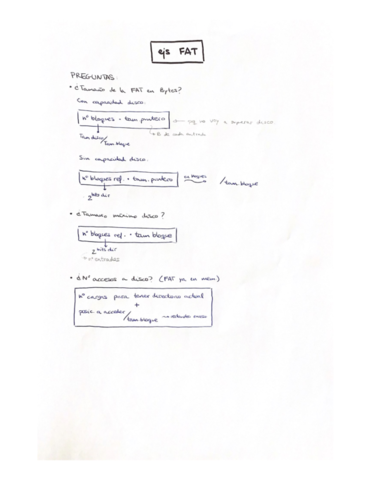 ejs FAT
PREGUNTAS:
• ¿Tamaño de la FAT en Bytes?
Con capacidad disco:
nº bloques · tam. puntero
Tam disco/tam bloque
Sin capacidad disco:
nº bloques ref. · tam. puntero en bloques /tam. bloque
2 bits dir
• ¿Tamaño máximo disco?
nº bloques ref. · tam bloque
2 bits dir
nº entradas
• ¿Nº accesos a disco? (FAT ya en mem)
nº cargas para tener directorio actual
+
posic. a acceder/tam bloque